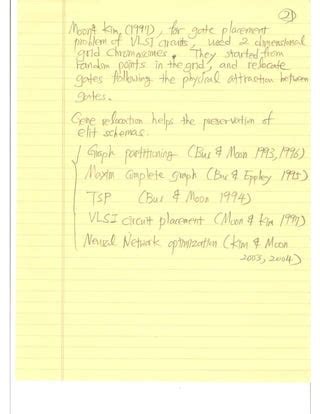 2)
Moon & Kim (1997), for gate placement
problem of VLSI circuits, used 2 dimensional
grid chromosomes. They started from
random points in the grid, and relocate
gates following the physical attraction between
gates.
Gene relocation helps the preservation of
elit schemas.
Graph partitioning (Bui & Moon 1993, 1996)
Maxim Complete graph (Bui & Eppley 1995)
TSP (Bui & Moon 1994)
VLSI circuit placement (Moon & Kim 1997)
Neural Network optimization (Kim & Moon
2003, 2004)